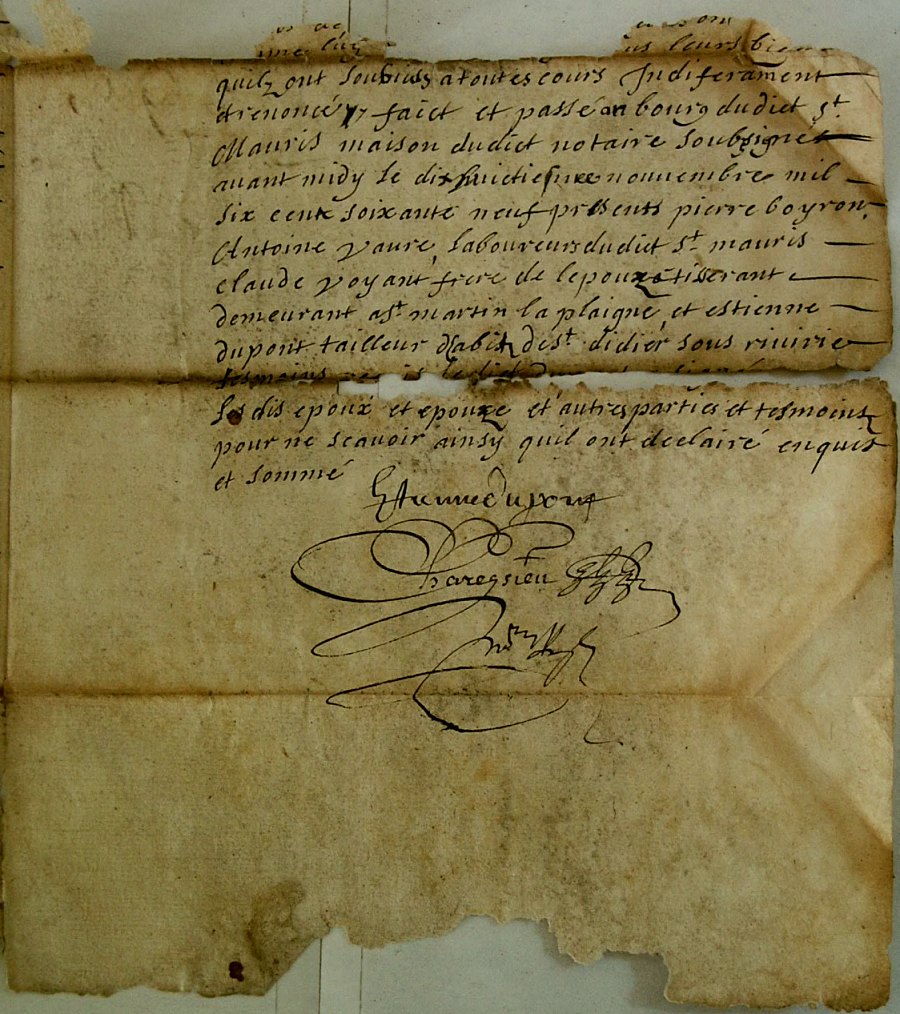 us leurs bie
quilz ont soubmis a toutes cours Indiferament
et renoncé faict et passé au bourg dudict St
Mauris maison dudict notaire soubsigné
avant midy le dixhuictiesme nouvembre mil
six cent soixante neuf presents pierre boyron
Antoine vaure laboureurs dudict St mauris
claude voyant frere de lepouze tisserant
demeurant a St martin la plaigne et estienne
dupont tailleur dabitz de St didier sous rivirie
tesmoins ledict
les dis epoux et epouze et autres parties et tesmoins
pour ne scavoir ainsy quil ont declairé enquis
et sommé
Estienne Dupont